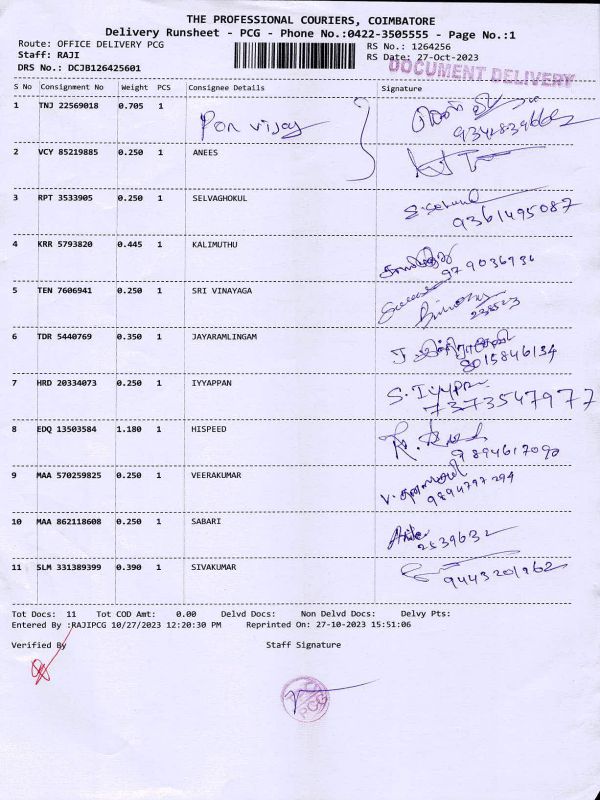 THE PROFESSIONAL COURIERS, COIMBATORE
Delivery Runsheet - PCG - Phone No.:0422-3505555 - Page No.:1
Route: OFFICE DELIVERY PCG RS No.: 1264256
Staff: RAJI RS Date: 27-Oct-2023
DRS No.: DCJB126425601 DOCUMENT DELIVERY
S No Consignment No Weight PCS Consignee Details Signature
1 TNJ 22569018 0.705 1 Pon vijay
2 VCY 85219885 0.250 1 ANEES
3 RPT 3533905 0.250 1 SELVAGHOKUL
9361495087
4 KRR 5793820 0.445 1 KALIMUTHU
5 TEN 7606941 0.250 1 SRI VINAYAGA
6 TDR 5440769 0.350 1 JAYARAMLINGAM
8015846134
7 HRD 20334073 0.250 1 IYYAPPAN S. IYYPPa
7373547977
8 EDQ 13503584 1.180 1 HISPEED
9894617090
9 MAA 570259825 0.250 1 VEERAKUMAR
9894797294
10 MAA 862118608 0.250 1 SABARI
2539632
11 SLM 331389399 0.390 1 SIVAKUMAR
9443201962
Tot Docs: 11 Tot COD Amt: 0.00 Delvd Docs: Non Delvd Docs: Delvy Pts:
Entered By :RAJIPCG 10/27/2023 12:20:30 PM Reprinted On: 27-10-2023 15:51:06
Verified By Staff Signature
PCG